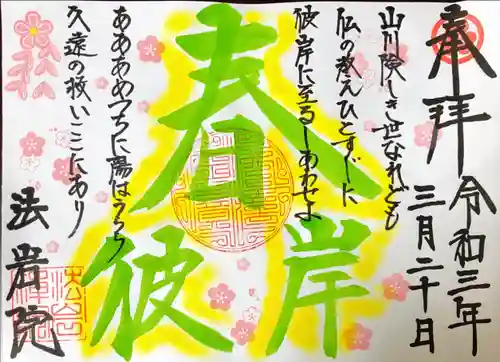 奉拝
令和三年
三月二十日
山川険しき世なれども
仏の教えひとすじに
彼岸に至るしあわせよ
春
彼岸
あああめつちに陽はうらら
久遠の救いここにあり
法岩院